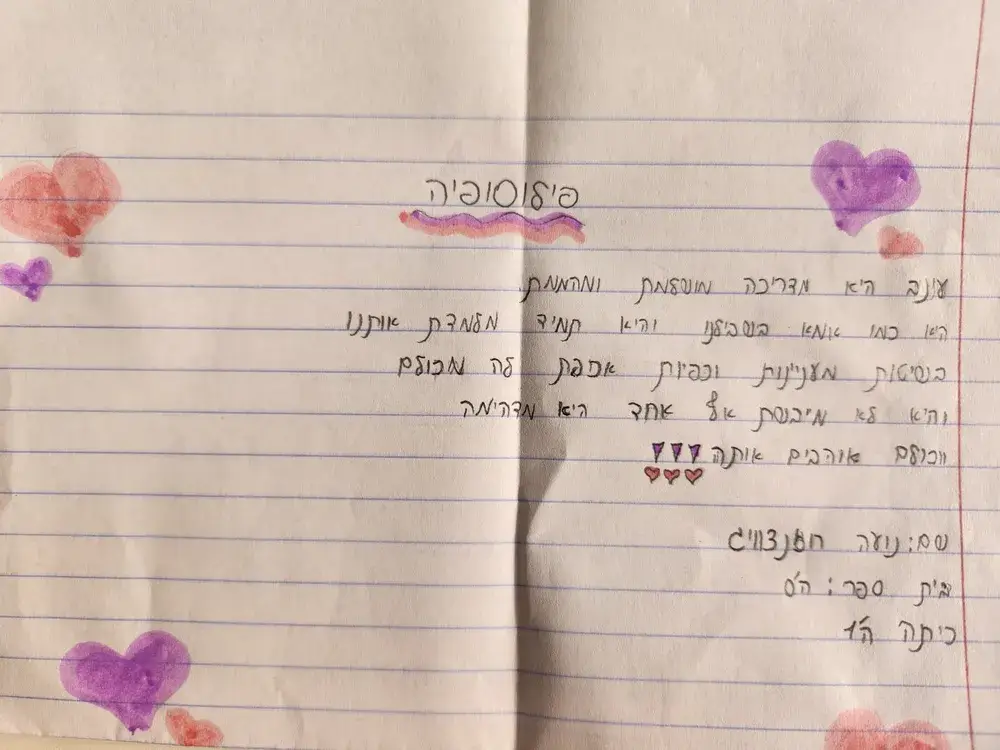 פילוסופיה
עינב היא מדריכה מושלמת ומהממת
היא כמו אמא בשבילנו והיא תמיד מלמדת אותנו
בשיטות מעניינות וכפיות אכפת לה מכולם
והיא לא מייבשת אף אחד היא מדהימה
וכולם אוהבים אותה
שם: נועה
בית ספר: ה'ס
כיתה ה'1